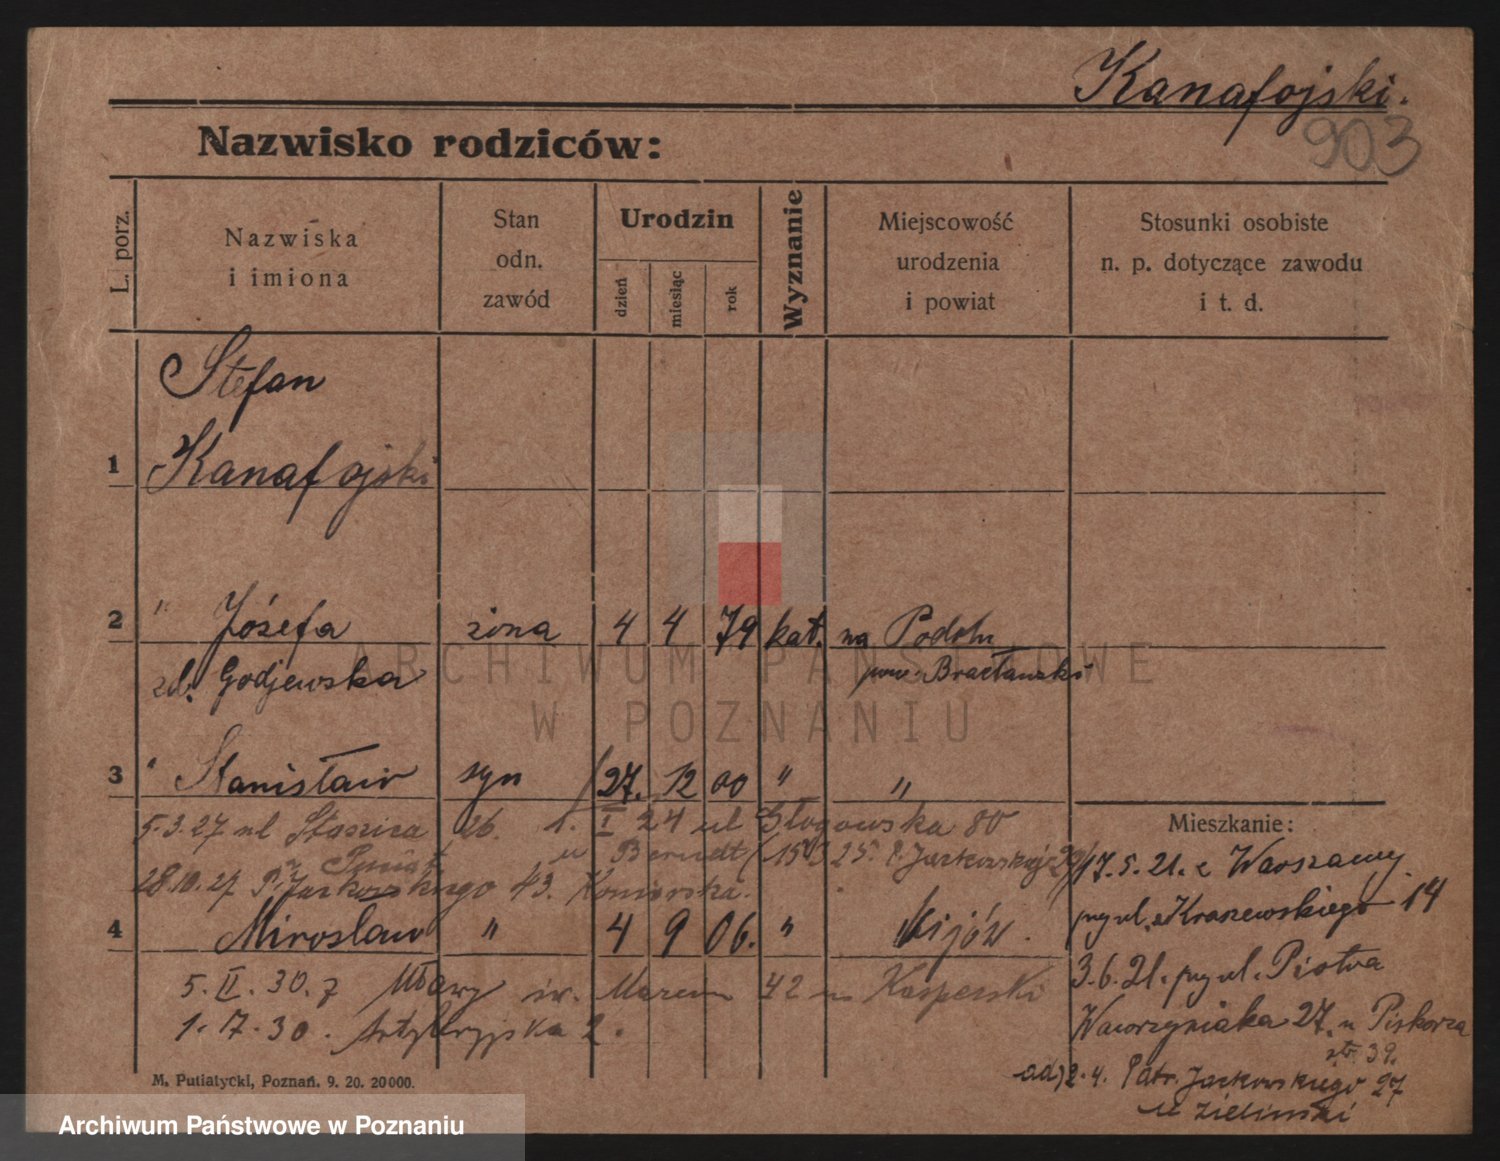 Kanafojski.
903
Nazwisko rodziców:
L. porz.
Nazwiska
i imiona
Stan
odn.
zawód
Urodzin
dzień
miesiąc
rok
Wyznanie
Miejscowość
urodzenia
i powiat
Stosunki osobiste
n. p. dotyczące zawodu
i t. d.
Stefan
1 Kanafojski
2 " Józefa żona 4 4 79 kat. na Podolu
zd. Godjewska pow. Bracławski
3 " Stanisław syn 27. 12 00 " "
5.3.27 ul Staszica 26. 1. I 24 ul Głogowska 80
u Berndt (15 3 25. P. Jackowskiej 29)
28.10.27 P. Jackowskiego 43. Komorska.
4 Mirosław " 4 9 06. " Kijów.
5. II. 30. z Mławy św. Marcin 42 m Kasperski
1. 17. 30. Artyleryjska 2.
Mieszkanie:
17.5.21. z Warszawy
przy ul. Kraszewskiego 14
3.6.21. przy ul. Piotra
Wawrzyniaka 27. u Piskorza
str. 39.
ad) 2.4. Patr. Jackowskiego 27
u Zieliński
M. Putiatycki, Poznań. 9. 20. 20000.
ARCHIWUM PAŃSTWOWE
W POZNANIU
Archiwum Państwowe w Poznaniu